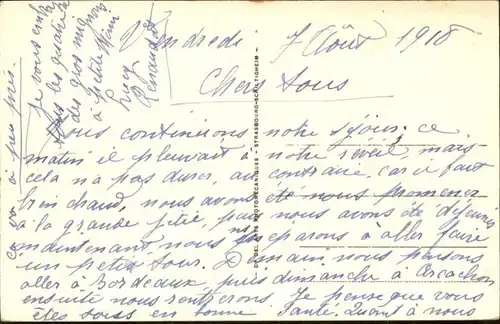 Vendredi 7 Août 1918
Chers tous
Nous continuons notre séjour, ce
matin il pleuvait à notre réveil mais
cela n'a pas durer, au contraire, car il fait
bien chaud, nous avons été nous promener
à la grande jetée, puis nous avons été déjeuner
maintenant nous nous préparons à aller faire
un petit tour. Demain nous pensons
aller à Bordeaux, puis dimanche à Arcachon
ensuite nous rentrerons. Je pense que vous
êtes tous en bonne santé. Quant à nous
ça va à peu près.
Je vous embrasse
tous les quatre
des gros mignons
à petite
Lucy
STRASBOURG-SCHILTIGHEIM